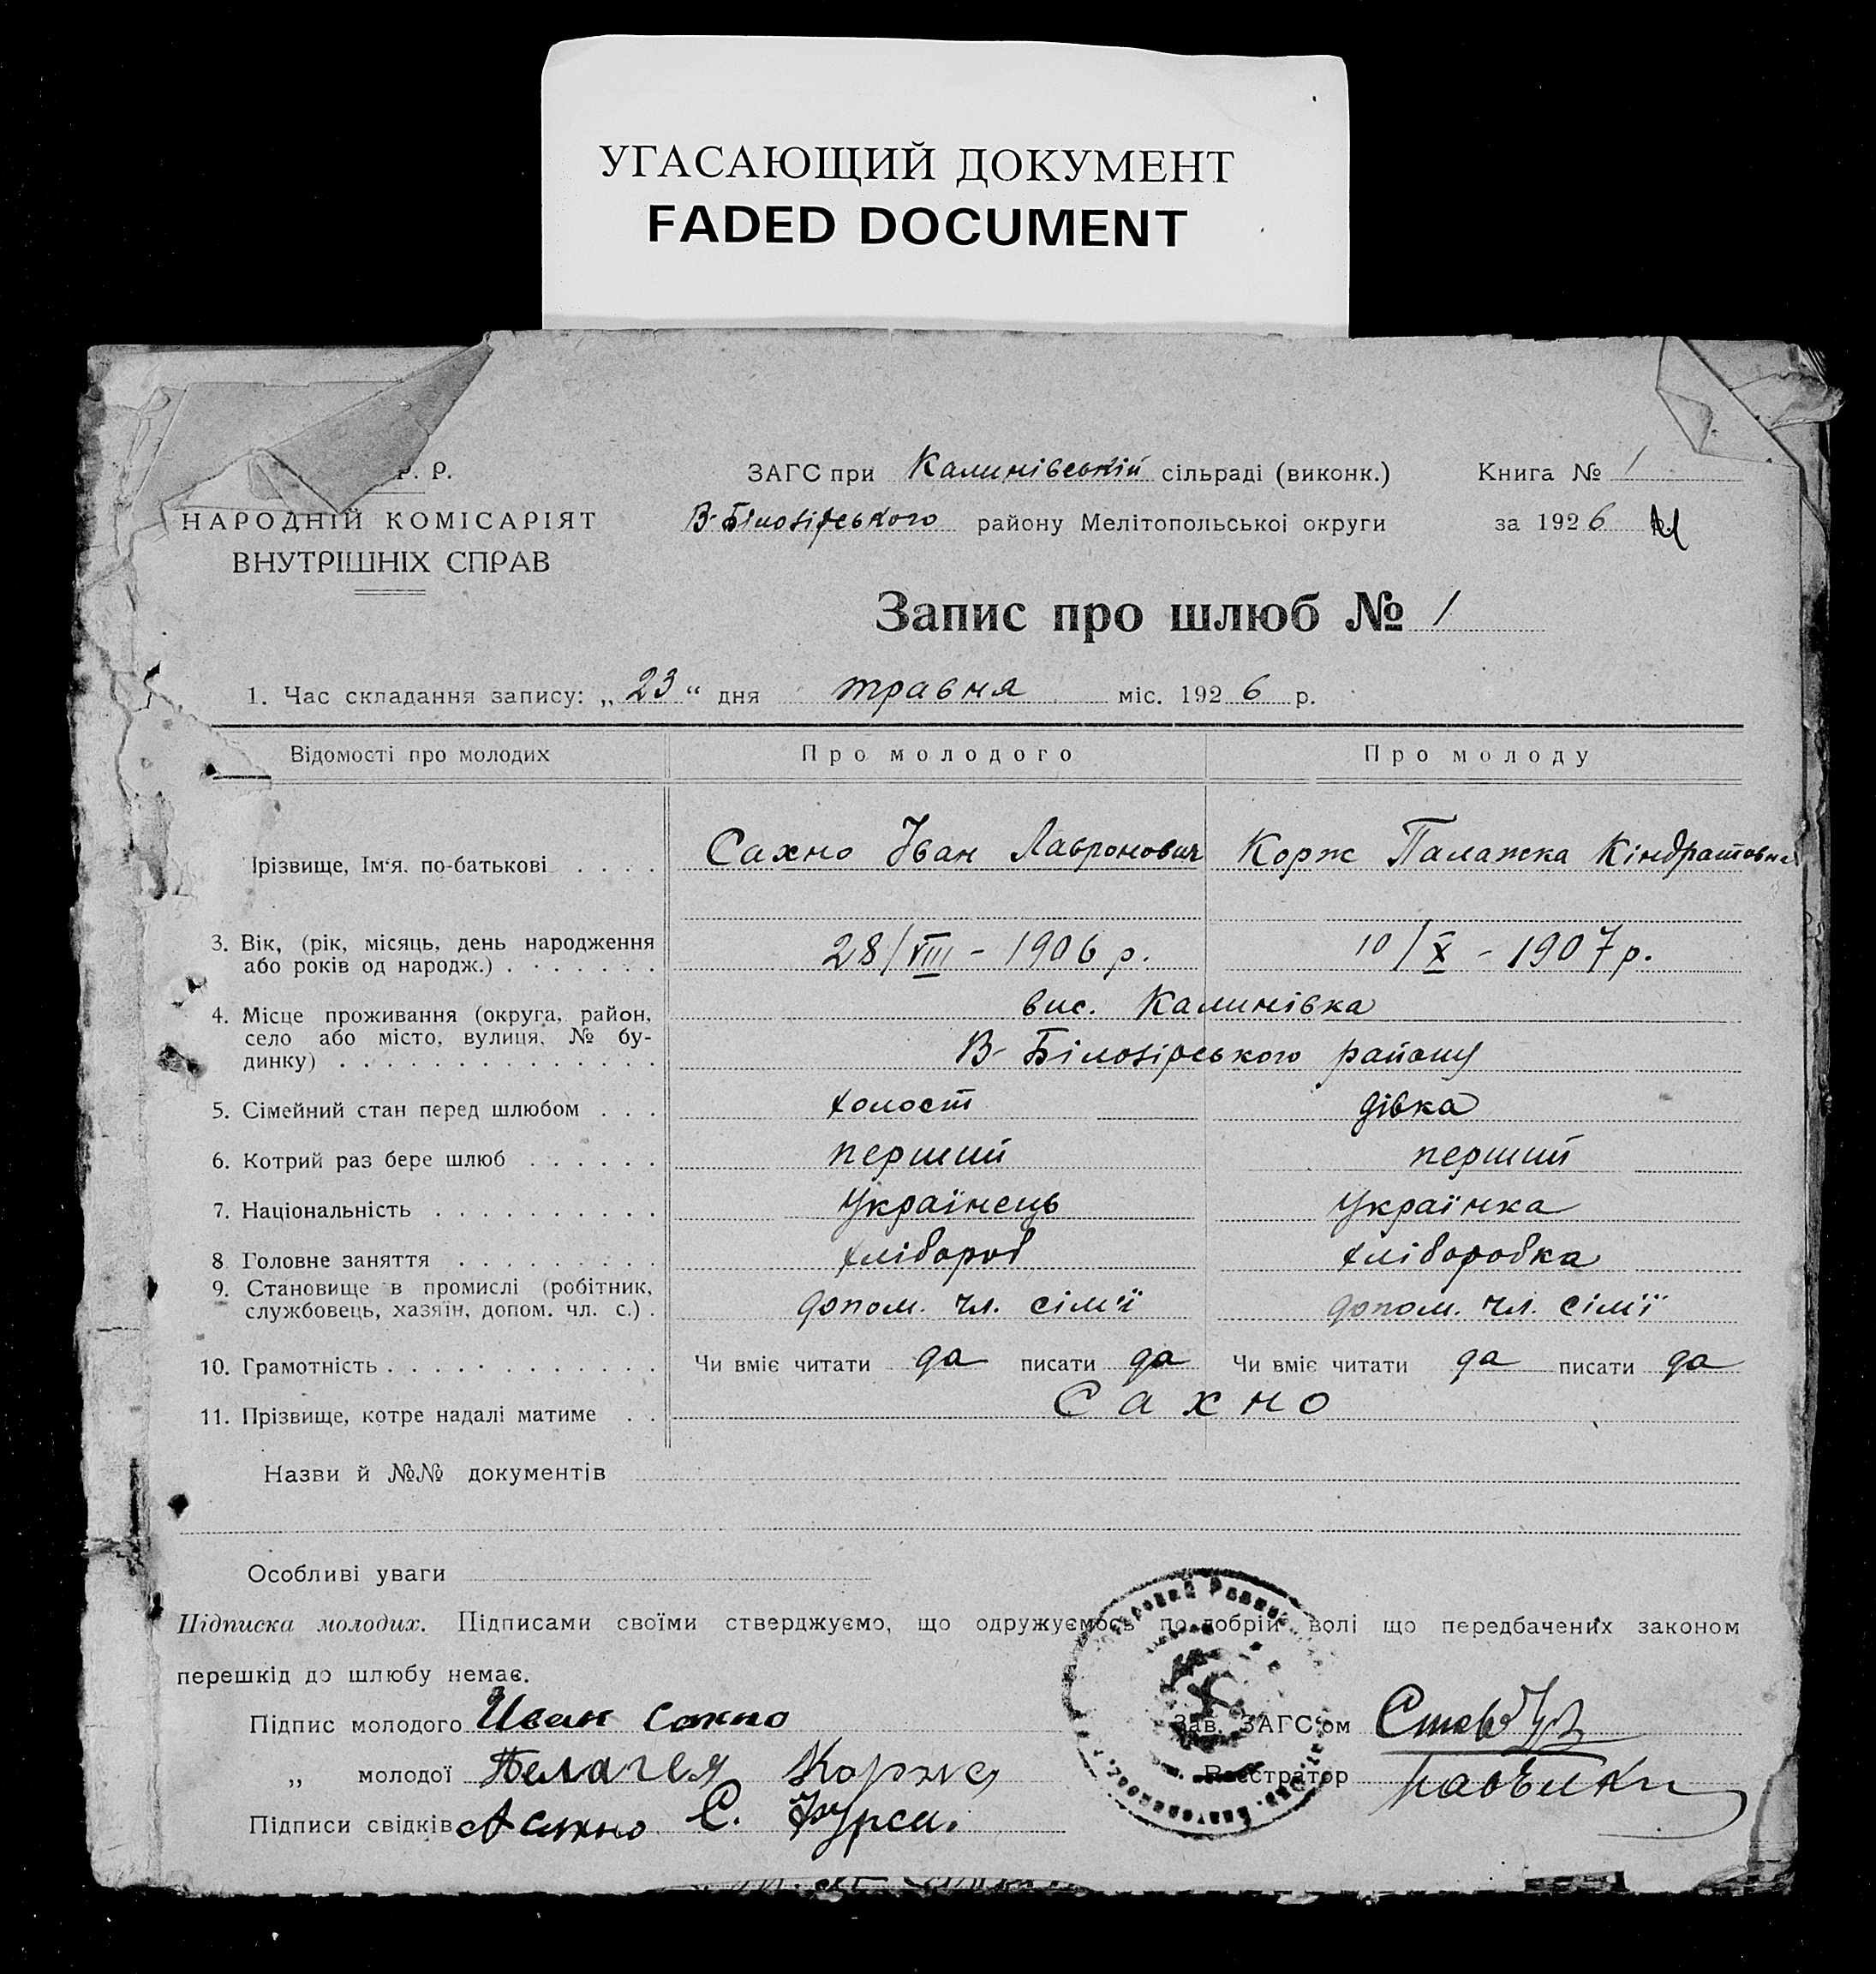 УГАСАЮЩИЙ ДОКУМЕНТ
FADED DOCUMENT
Р. Р.
НАРОДНІЙ КОМІСАРІЯТ
ВНУТРІШНІХ СПРАВ
ЗАГС при Калинівській сільраді (виконк.)
В-Білозірського району Мелітопольської округи
Книга № 1
за 1926
Запис про шлюб № 1
1. Час складання запису: „23“ дня травня міс. 1926 р.
Відомості про молодих Про молодого Про молоду
Прізвище, Ім‘я, по-батькові . . . . Сахно Іван Лавронович Корж Палажка Кіндратовна
3. Вік, (рік, місяць, день народження
або років од народж.) . . . . . . . 28/VIII - 1906 р. 10/X - 1907 р.
4. Місце проживання (округа, район,
село або місто, вулиця, № бу-
динку) . . . . . . . . . . . . . .
вис. Калинівка
В-Білозірського району
5. Сімейний стан перед шлюбом . . . холост дівка
6. Котрий раз бере шлюб . . . . . . перший перший
7. Національність . . . . . . . . . . Українець Українка
8 Головне заняття . . . . . . . . . хлібороб хліборобка
9. Становище в промислі (робітник,
службовець, хазяїн, допом. чл. с.) . допом. чл. сім'ї допом. чл. сім'ї
10. Грамотність . . . . . . . . . . . . Чи вміє читати да писати да Чи вміє читати да писати да
11. Прізвище, котре надалі матиме . . Сахно
Назви й №№ документів
Особливі уваги
Підписка молодих. Підписами своїми стверджуємо, що одружуємось по добрій волі що передбачених законом
перешкід до шлюбу немає.
Підпис молодого Иван Сахно
Зав. ЗАГС‘ом
„ молодої Пелагея Корж
Реєстратор
Підписи свідків А Сахно С. Фурси.